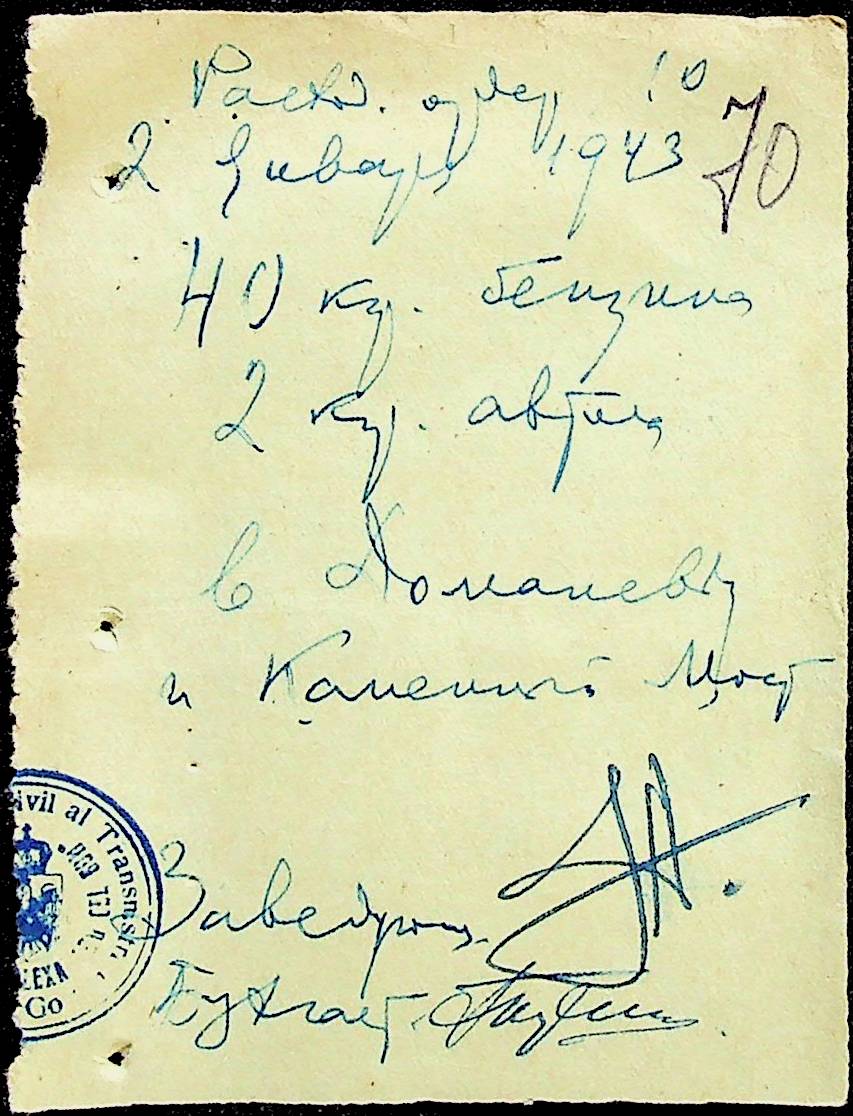 Расход. ордер 10
2 Января 1943 70
40 кг. бензина
2 кг. автола
в Доманевку
и Каменный Мост
ivil al Transnistr
Заведующ.
Go